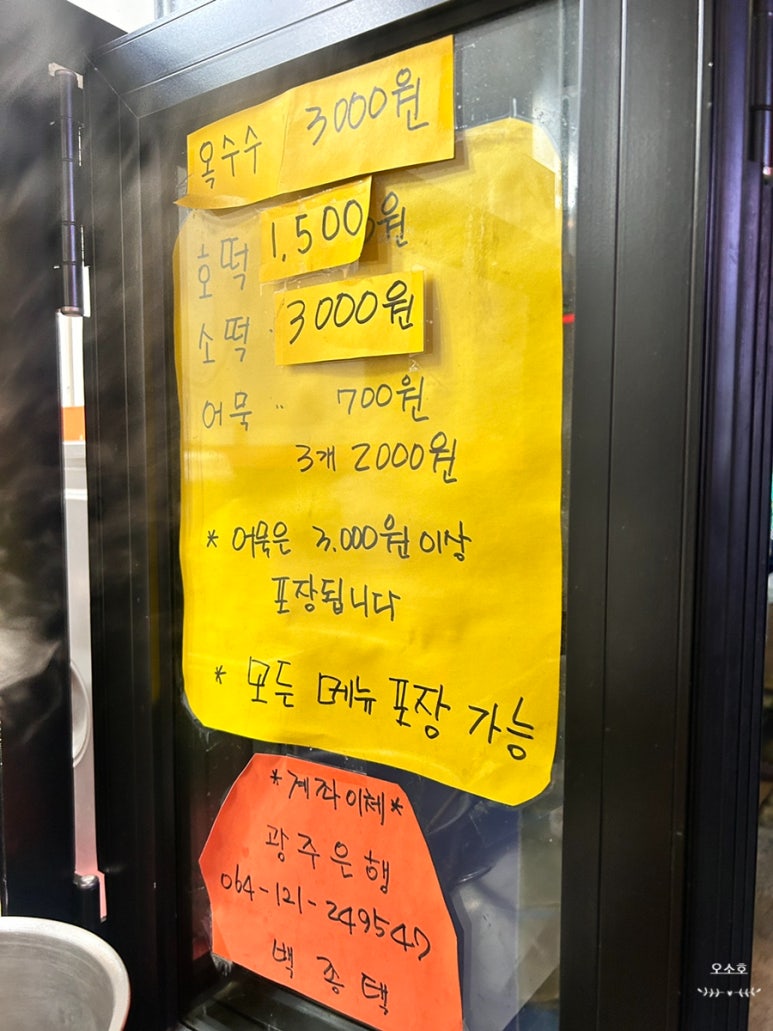 옥수수 3000원
호떡 1.500원
소떡 3000원
어묵 .. 700원
3개 2000원
* 어묵은 3.000원 이상
포장됩니다
* 모든 메뉴 포장 가능
*계좌이체*
광주은행
064-121-249547
백종택
오소호